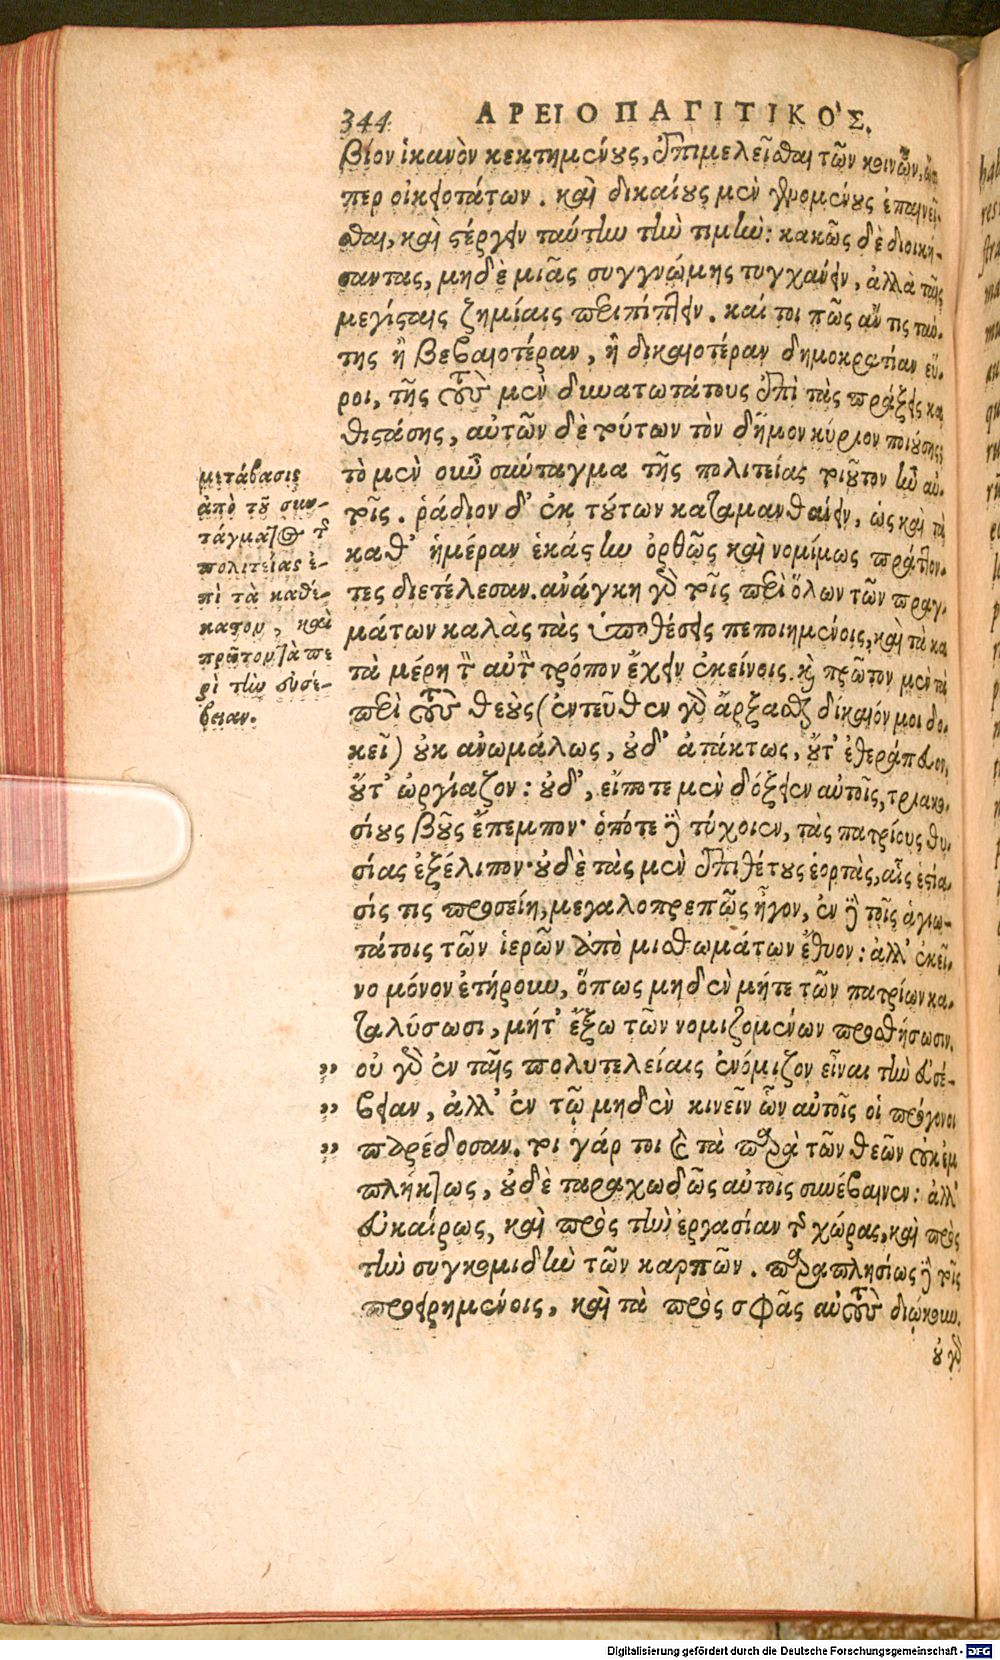 344 ΑΡΕΙΟΠΑΓΙΤΙΚΟ'Σ.
βίον ἱκανὸν κεκτημένους, ἐπιμελεῖσθαι τῶν κοινῶν, ὥσ
περ οἰκετῶν. καὶ δικαίους μὲν γενομένους ἐπαινεῖ-
σθαι, καὶ στέργειν ταύτην τὴν τιμὴν: κακῶς δὲ διοικη-
σαντας, μηδὲ μιᾶς συγγνώμης τυγχάνειν, ἀλλὰ ταῖς
μεγίσταις ζημίαις περιπίπτειν. καί τοι πῶς ἄν τις ταύ-
της ἢ βεβαιοτέραν, ἢ δικαιοτέραν δημοκρατίαν εὕ-
ροι, τῆς τοὺς μὲν δυνατωτάτους ἐπὶ τὰς πράξεις κα
θιστάσης, αὐτῶν δὲ τούτων τὸν δῆμον κύριον ποιούσης;
τὸ μὲν οὖν σύνταγμα τῆς πολιτείας τοιοῦτον ἦν αὐ-
τοῖς. ῥάδιον δ' ἐκ τούτων καταμανθάνειν, ὡς καὶ τὰ
καθ' ἡμέραν ἑκάστην ὀρθῶς καὶ νομίμως πράττον-
τες διετέλεσαν. ἀνάγκη γὰρ τοῖς περὶ ὅλων τῶν πραγ-
μάτων καλὰς τὰς ὑποθέσεις πεποιημένοις, καὶ τὰ κα
τὰ μέρη τὸν αὐτὸν τρόπον ἔχειν ἐκείνοις. καὶ πρῶτον μὲν τὰ
περὶ τοὺς θεοὺς (ἐντεῦθεν γὰρ ἄρξασθαι δίκαιόν μοι δο-
κεῖ) οὐκ ἀνωμάλως, οὐδ' ἀτάκτως, οὔτ' ἐθεράπευον,
οὔτ' ὠργίαζον: οὐδ', εἴποτε μὲν δόξειεν αὐτοῖς, τριακο-
σίους βοῦς ἔπεμπον· ὁπότε δὲ τύχοιεν, τὰς πατρίους θυ-
σίας ἐξέλιπον· οὐδὲ τὰς μὲν ἐπιθέτους ἑορτὰς, αἷς ἑστία-
σίς τις προσείη, μεγαλοπρεπῶς ἦγον, ἐν δὲ τοῖς ἁγιω-
τάτοις τῶν ἱερῶν ἀπὸ μισθωμάτων ἔθυον: ἀλλ' ἐκεῖ-
νο μόνον ἐτήρουν, ὅπως μηδὲν μήτε τῶν πατρίων κα-
ταλύσωσι, μήτ' ἔξω τῶν νομιζομένων προσθήσωσιν.
” οὐ γὰρ ἐν ταῖς πολυτελείαις ἐνόμιζον εἶναι τὴν εὐσέ-
” βειαν, ἀλλ' ἐν τῷ μηδὲν κινεῖν ὧν αὐτοῖς οἱ πρόγονοι
” παρέδοσαν. τοι γάρ τοι καὶ τὰ παρὰ τῶν θεῶν οὐκ ἐμ
πλήκτως, οὐδὲ ταραχωδῶς αὐτοῖς συνέβαινεν: ἀλλ'
εὐκαίρως, καὶ πρὸς τὴν ἐργασίαν τῆς χώρας, καὶ πρὸς
τὴν συγκομιδὴν τῶν καρπῶν. παραπλησίως δὲ τοῖς
προειρημένοις, καὶ τὰ πρὸς σφᾶς αὐτοὺς διῴκουν.
οὐ γὰρ
μετάβασις
ἀπὸ τοῦ συν-
τάγματος τῆς
πολιτείας ἐ-
πὶ τὰ καθέ-
καστον, καὶ
πρῶτον τὰ πε
ρὶ τὴν εὐσέ-
βειαν.
Digitalisierung gefördert durch die Deutsche Forschungsgemeinschaft - DFG